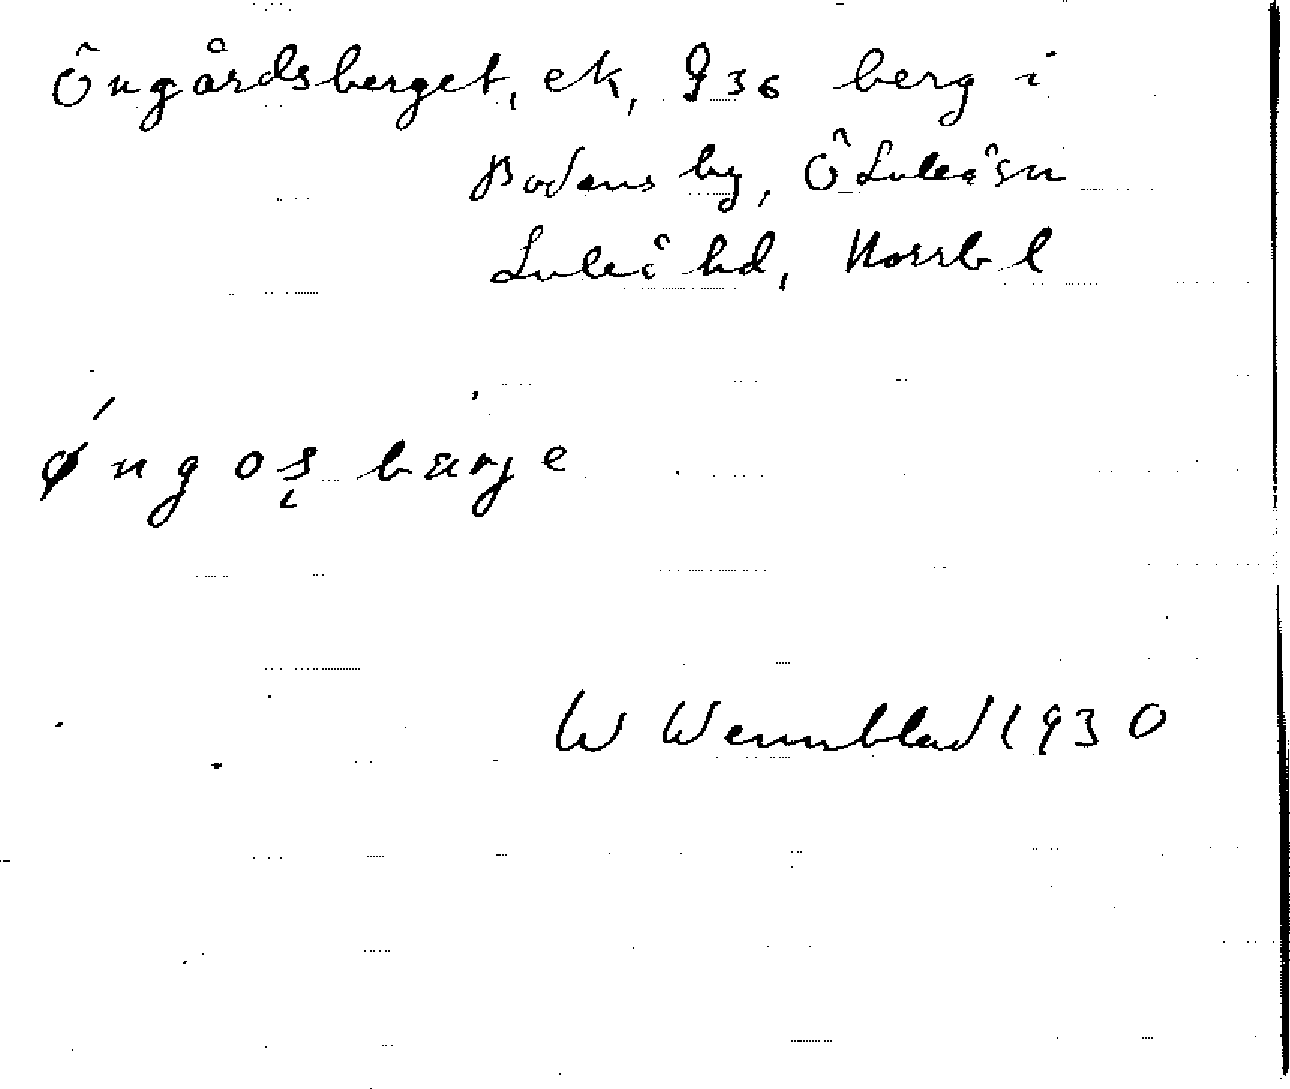 Öngårdsberget, ek, 936 berg i
Bodens by, Ö Luleå sn
Luleå hd, Norrb l
øngoş bärje
W Wennblad 1930